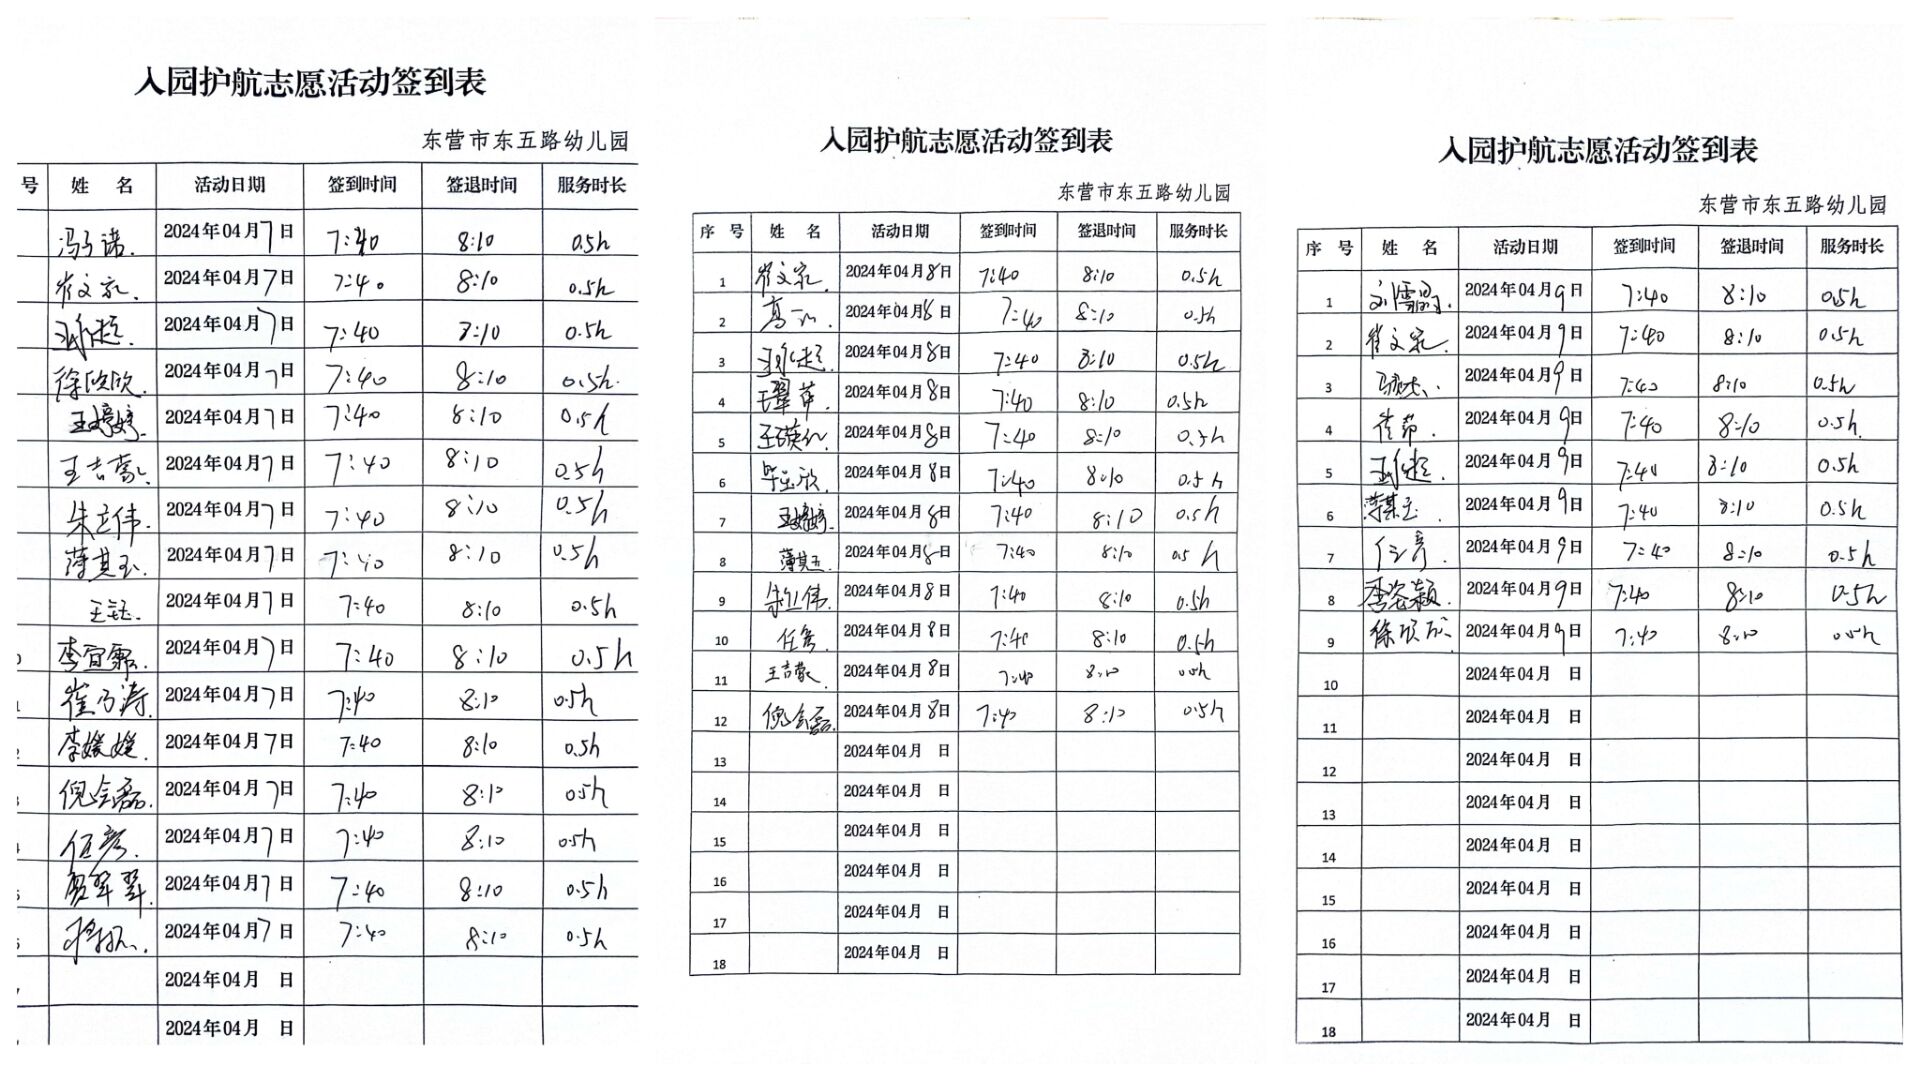 入园护航志愿活动签到表
东营市东五路幼儿园
号 姓 名 活动日期 签到时间 签退时间 服务时长
冯子诺. 2024年04月7日 7:40 8:10 0.5h
崔文家. 2024年04月7日 7:40 8:10 0.5h
2024年04月7日 7:40 8:10 0.5h
徐欣欣. 2024年04月7日 7:40 8:10 0.5h.
王婷婷. 2024年04月7日 7:40 8:10 0.5h
王吉蒙. 2024年04月7日 7:40 8:10 0.5h
朱立伟. 2024年04月7日 7:40 8:10 0.5h
薄其玉. 2024年04月7日 7:40 8:10 0.5h
王钰. 2024年04月7日 7:40 8:10 0.5h
李宜霖. 2024年04月7日 7:40 8:10 0.5h
崔乃涛. 2024年04月7日 7:40 8:10 0.5h
李媛媛. 2024年04月7日 7:40 8:10 0.5h
倪会磊. 2024年04月7日 7:40 8:10 0.5h
任彦. 2024年04月7日 7:40 8:10 0.5h
翠翠. 2024年04月7日 7:40 8:10 0.5h
2024年04月7日 7:40 8:10 0.5h
2024年04月 日
2024年04月 日
入园护航志愿活动签到表
东营市东五路幼儿园
序 号 姓 名 活动日期 签到时间 签退时间 服务时长
1 崔文家. 2024年04月8日 7:40 8:10 0.5h
2 2024年04月8日 7:40 8:10 0.5h
3 2024年04月8日 7:40 8:10 0.5h
4 2024年04月8日 7:40 8:10 0.5h
5 2024年04月8日 7:40 8:10 0.5h
6 2024年04月8日 7:40 8:10 0.5h
7 王婷婷. 2024年04月8日 7:40 8:10 0.5h
8 薄其玉. 2024年04月8日 7:40 8:10 0.5h
9 朱立伟. 2024年04月8日 7:40 8:10 0.5h
10 任彦. 2024年04月8日 7:40 8:10 0.5h
11 王吉蒙. 2024年04月8日 7:40 8:10 0.5h
12 倪会磊. 2024年04月8日 7:40 8:10 0.5h
13 2024年04月 日
14 2024年04月 日
15 2024年04月 日
16 2024年04月 日
17 2024年04月 日
18 2024年04月 日
入园护航志愿活动签到表
东营市东五路幼儿园
序 号 姓 名 活动日期 签到时间 签退时间 服务时长
1 2024年04月9日 7:40 8:10 0.5h
2 崔文家. 2024年04月9日 7:40 8:10 0.5h
3 2024年04月9日 7:40 8:10 0.5h
4 2024年04月9日 7:40 8:10 0.5h.
5 2024年04月9日 7:40 8:10 0.5h
6 薄其玉. 2024年04月9日 7:40 8:10 0.5h
7 任彦. 2024年04月9日 7:40 8:10 0.5h
8 李姿颖. 2024年04月9日 7:40 8:10 0.5h
9 徐欣欣. 2024年04月9日 7:40 8:10 0.5h
10 2024年04月 日
11 2024年04月 日
12 2024年04月 日
13 2024年04月 日
14 2024年04月 日
15 2024年04月 日
16 2024年04月 日
17 2024年04月 日
18 2024年04月 日